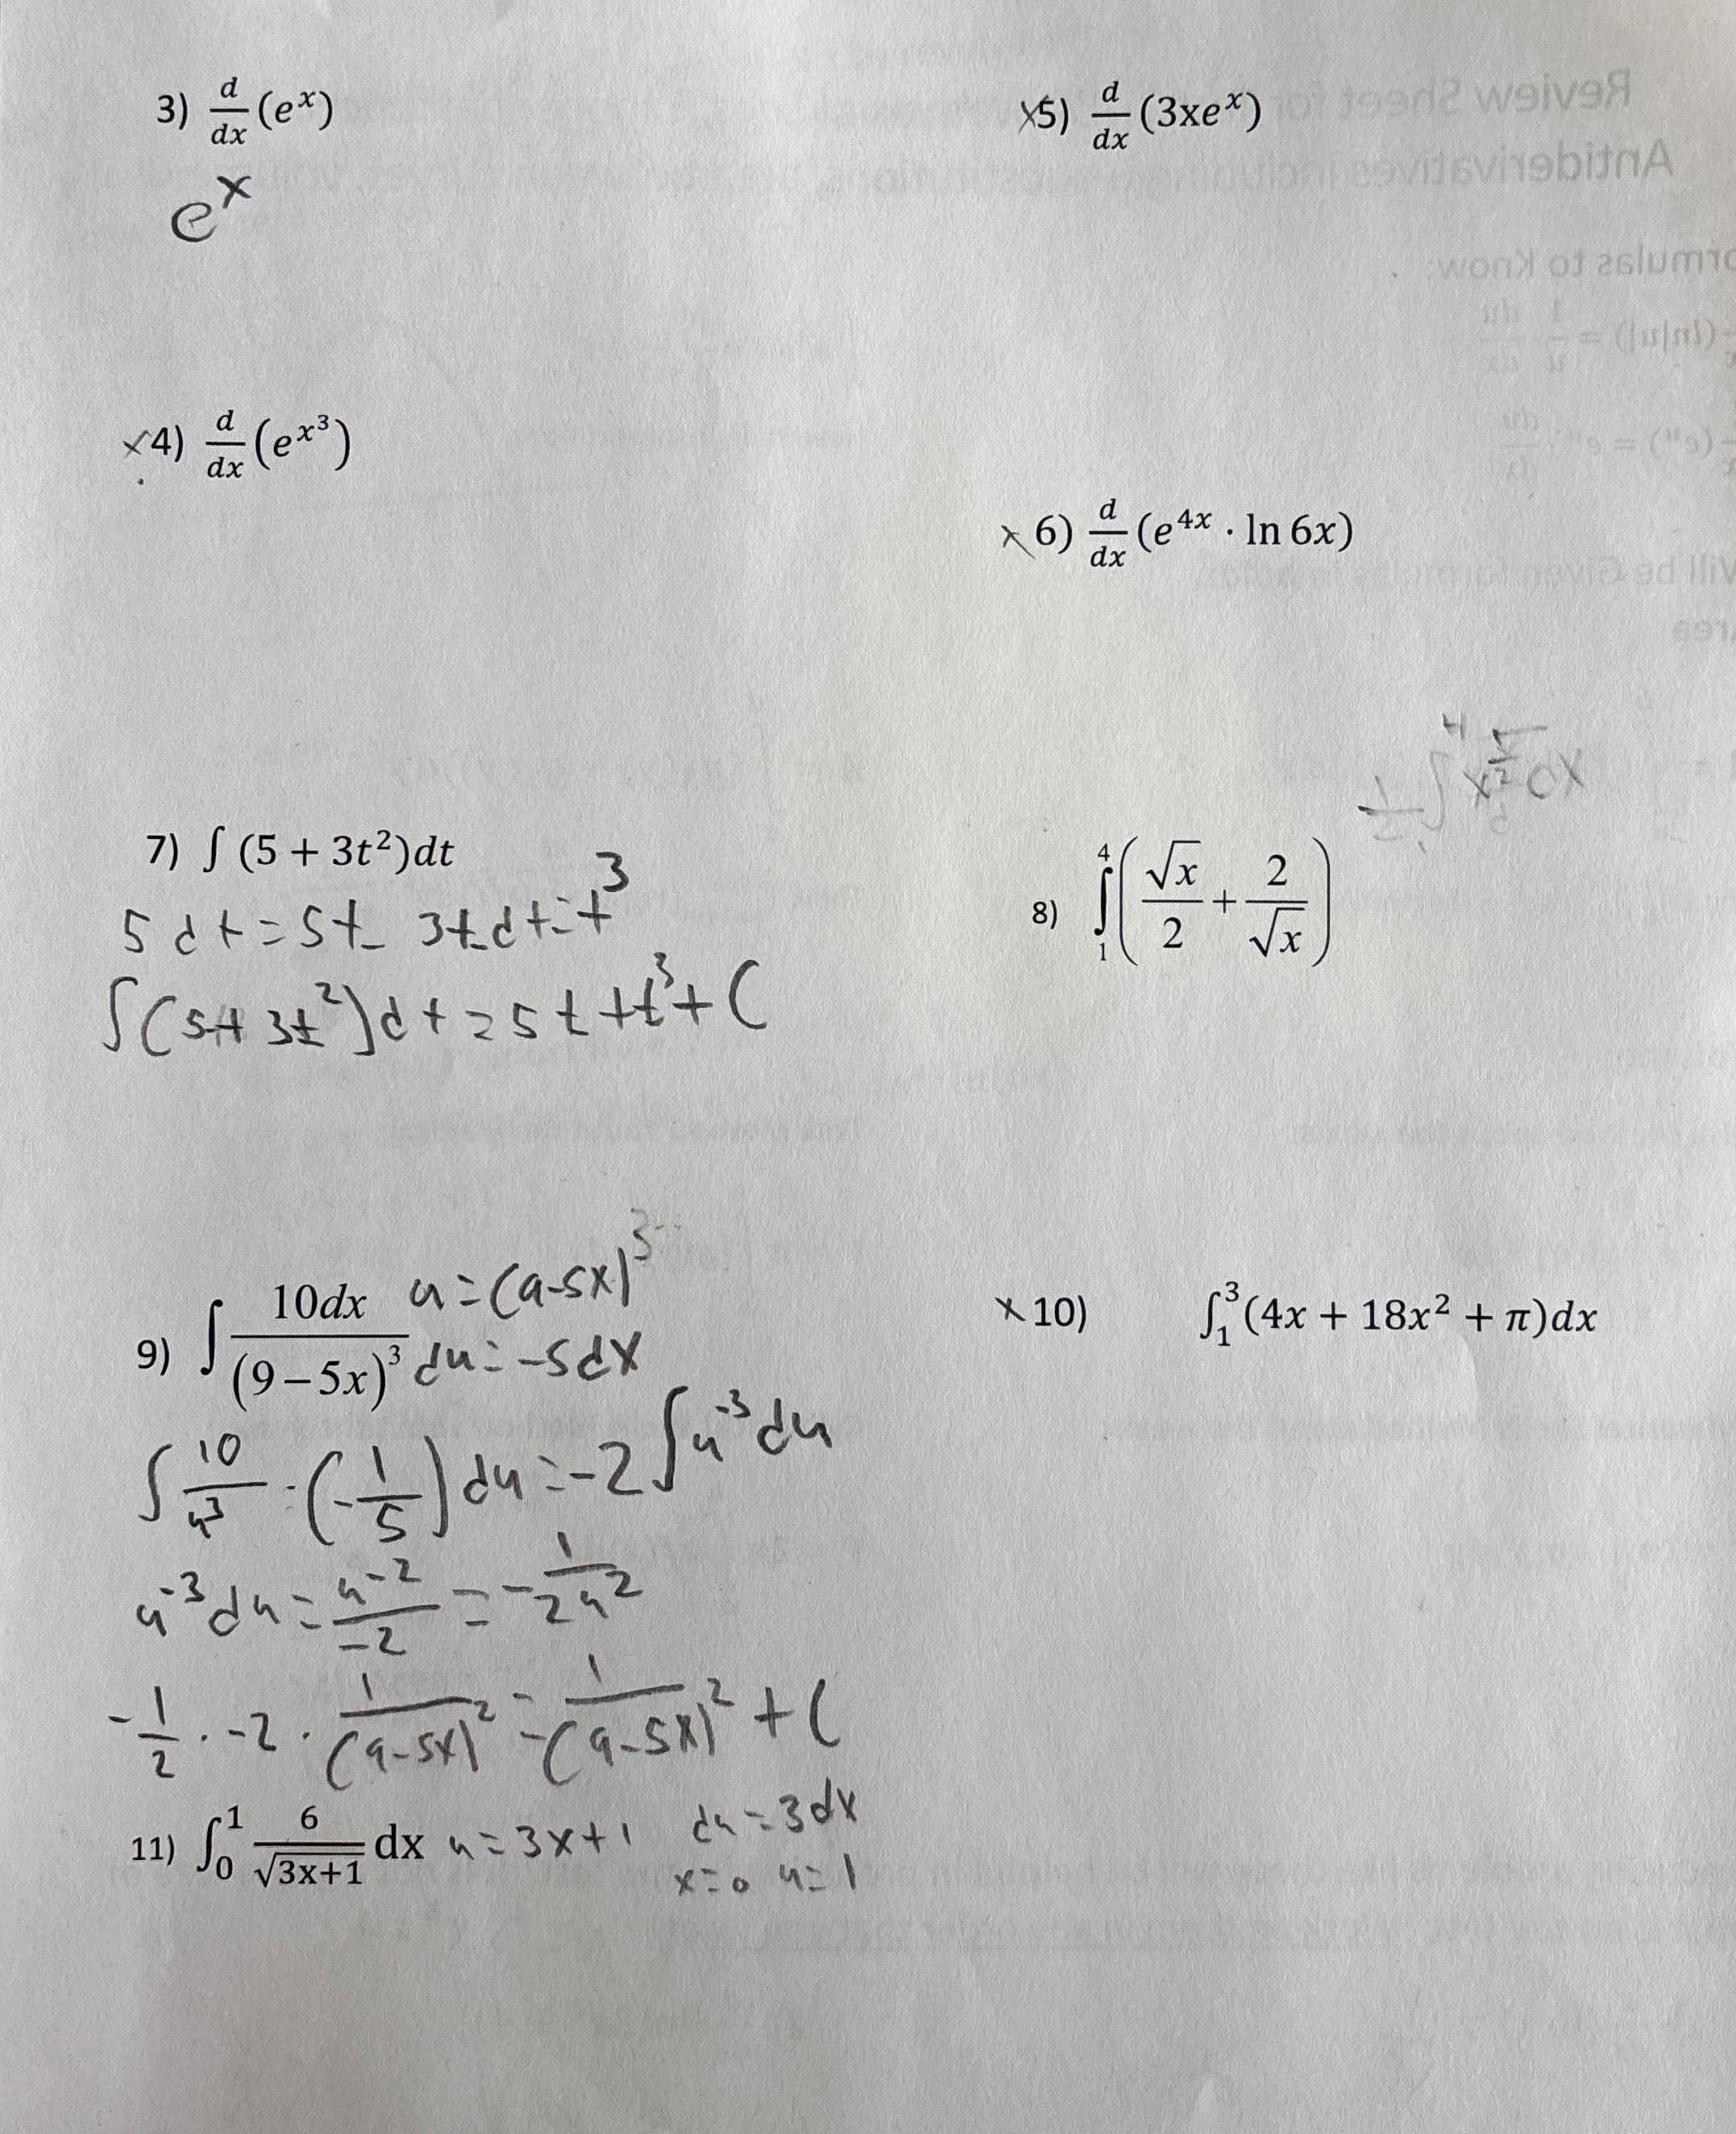 3) d/dx (e^x)
e^x
×4) d/dx (e^{x^3})
×5) d/dx (3xe^x)
×6) d/dx (e^{4x} · ln 6x)
7) ∫ (5 + 3t²)dt
5 dt = 5t 3t dt = t³
∫(5+3t²)dt = 5t + t³ + C
8) ∫₁⁴ (√x/2 + 2/√x)
9) ∫ 10dx/(9−5x)³ u = (9-5x)³
du = -5dx
∫ 10/u³ · (-1/5) du = -2 ∫ u⁻³ du
u⁻³ du = u⁻²/-2 = -1/2u²
-1/2 · -2 · 1/(9-5x)² = 1/(9-5x)² + C
×10) ∫₁³(4x + 18x² + π)dx
11) ∫₀¹ 6/√3x+1 dx u = 3x+1 du = 3dx
x=0 u=1